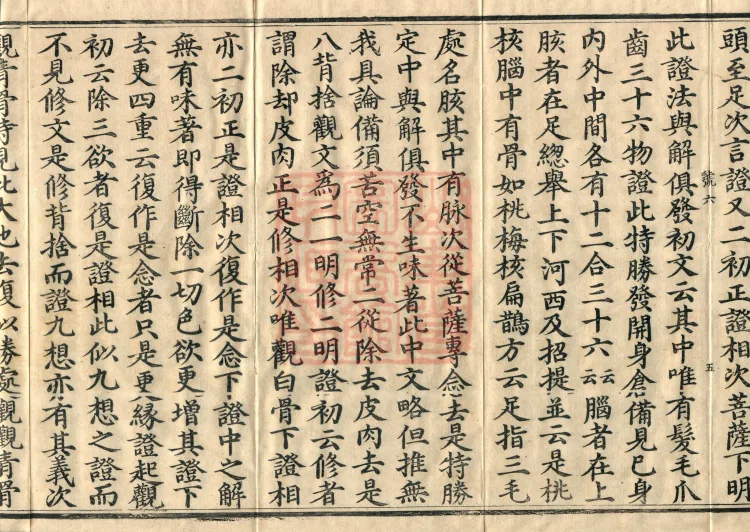 頭至足次言證又二初正證相次菩薩下明
號六
五
此證法與解俱發初文云其中唯有髮毛爪
齒三十六物證此特勝發開身倉備見已身
內外中間各有十二合三十六云云腦者在上
胲者在足緫舉上下河西及招提並云是桃
核腦中有骨如桃梅核扁鵲方云足指三毛
處名胲其中有脉次從菩薩專念去是特勝
定中與解俱發不生味著此中文略但推無
我具論備須苦空無常二從除去皮肉去是
八背捨觀文為二一明修二明證初云修者
謂除却皮肉正是修相次唯觀白骨下證相
亦二初正是證相次復作是念下證中之解
無有味著即得斷除一切色欲更增其證下
去更四重云復作是念者只是更緣證起觀
初云除三欲者復是證相此似九想之證而
不見修文是修背捨而證九想亦有其義次
觀青骨時見此大地去復似勝處觀觀青骨